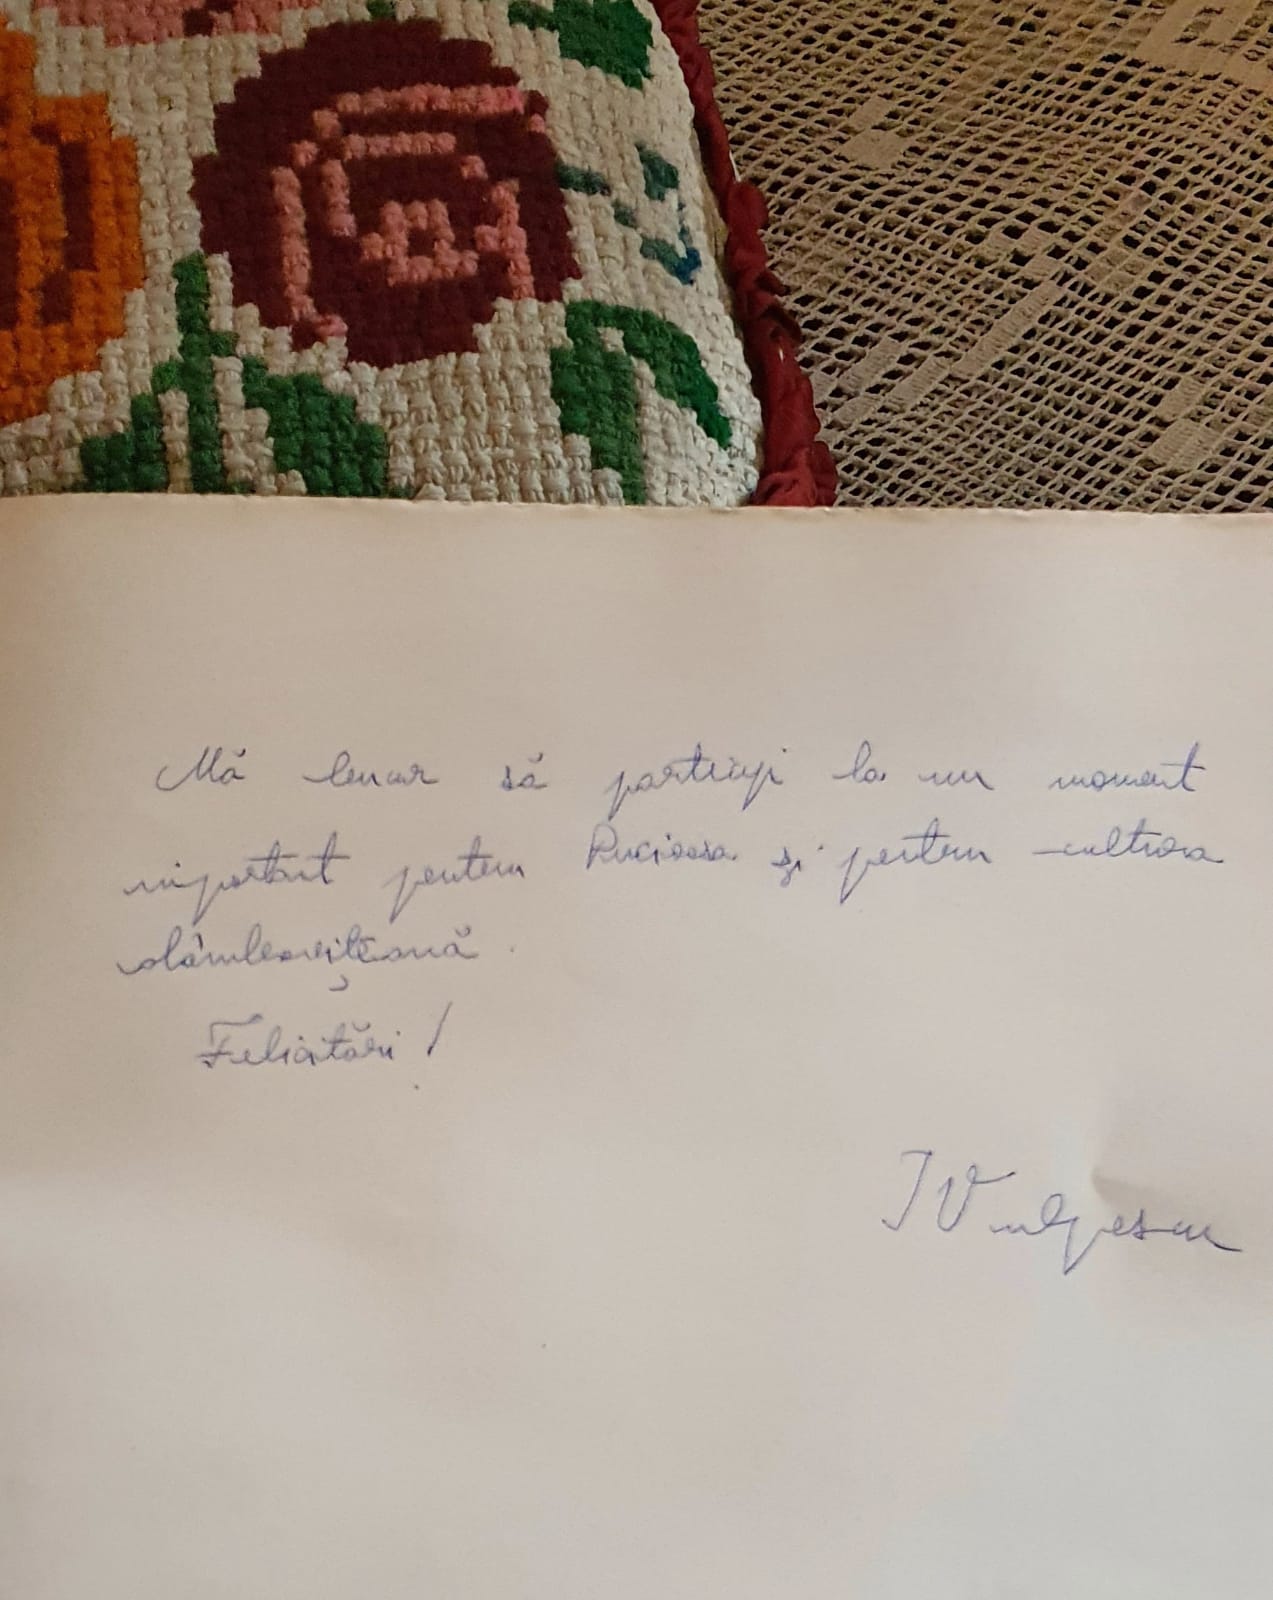 Mă bucur să particip la un moment
important pentru Pucioasa și pentru cultura
dâmbovițeană.
Felicitări!
I Vulpescu